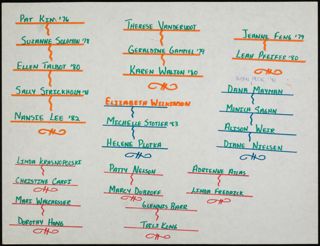 Pat Kim '76
Suzanne Solomon '78
Ellen Talbot '80
Sally Strickholm '81
Nansie Lee '82
Therese Vandervoot
Geraldine Gabriel '79
Karen Walton '80
Elizabeth Wilkinson
Michelle Stotler '83
Helene Plotka
Jeanne Feng '79
Leah Pfeifer '80
Dana Mayman
Monica Sachn
Alison Weir
Diane Nielsen
Linda Krasnopolski
Christine Carfi
Mari Walchesser
Dorothy Hong
Patty Nelson
Marcy Dobroff
Glennis Barr
Toble Kong
Adrienne Atlas
Linda Feedrick